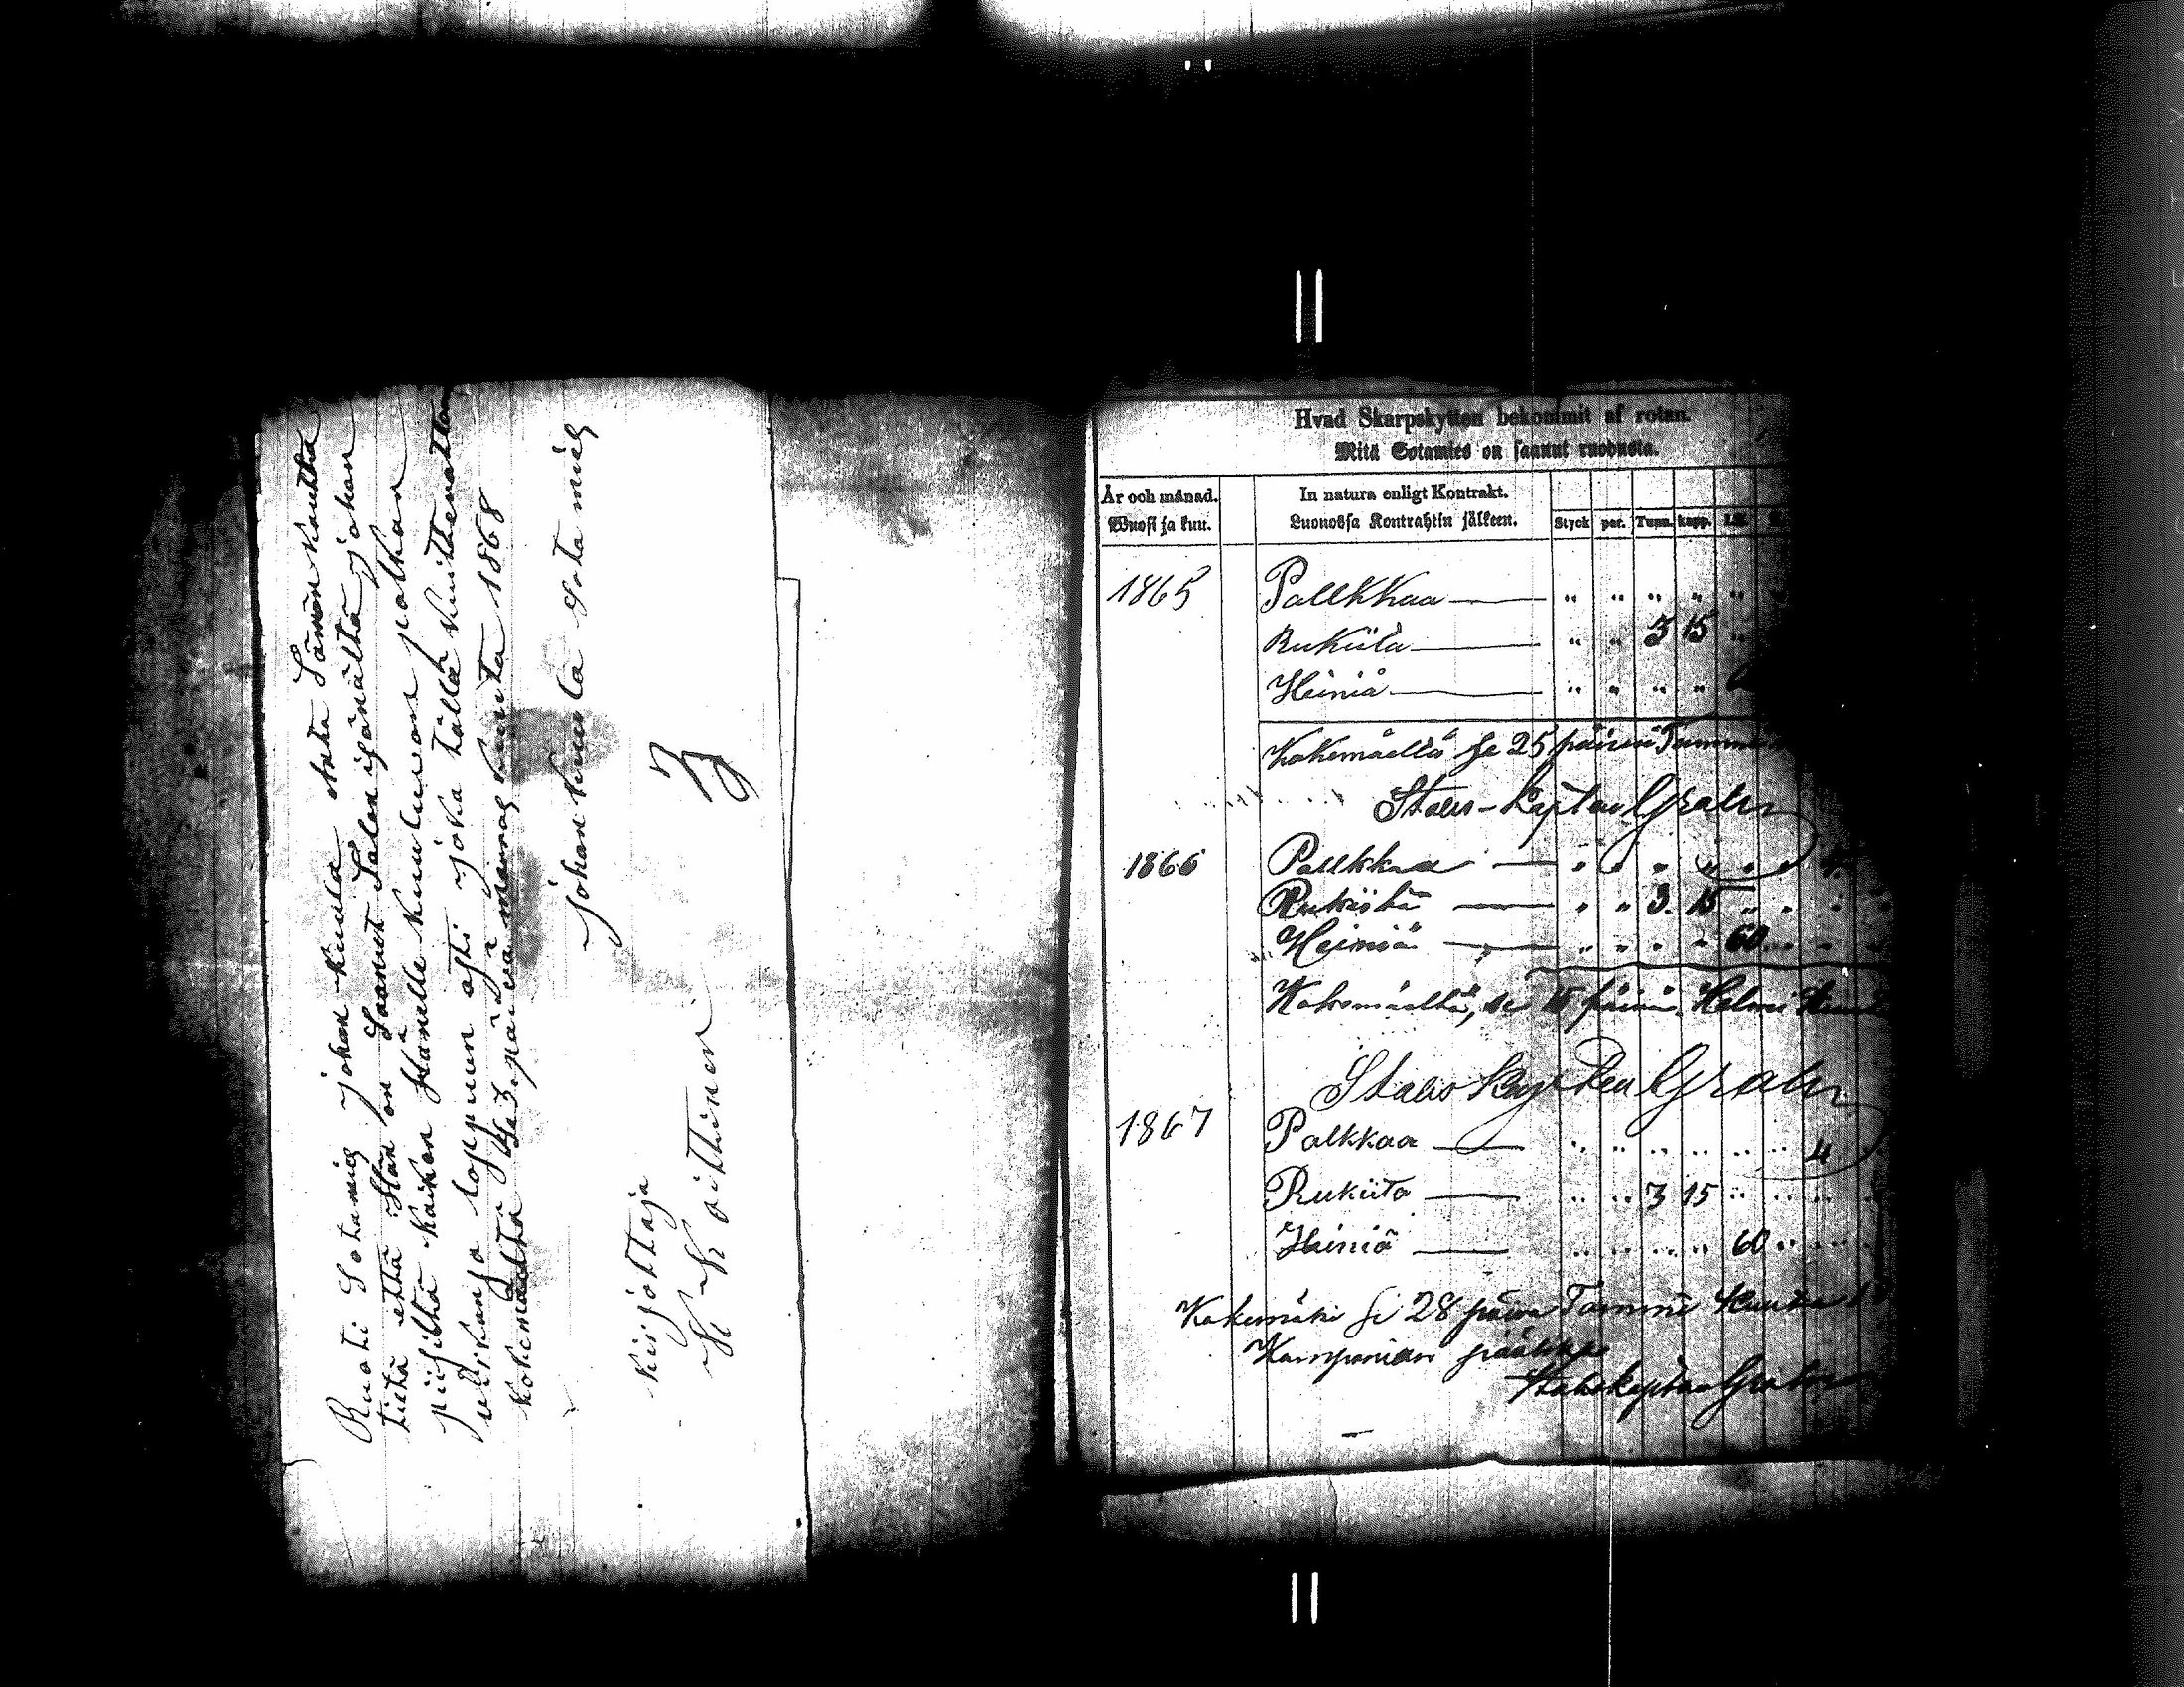 Ruoti Sotamies johan Kuula Anta Tämän Kautta
tietä että Hän on Saanut Talon isänältä johan
piisiltä Kaiken Hänelle kuuluvan palkan
loppuun asti joka tällä kuittenattan
Kokemäeltä Se 3 päivä marras kuuta 1868
johan Kuula Sota mies
Kirjottaja
3
Hvad Skarpskytten bekommit af rotan.
Mitä Sotamies on saanut ruodusta.
År och månad.
Wuosi ja kuu.
In natura enligt Kontrakt.
Luonossa Kontrahtin jälkeen.
Styck par. Tunn. kapp. L℔.
1865 Palkkaa — " " " " "
Rukiita — " " 3 15 "
Heiniä — " " " "
Kokemäellä Se 25 päivä Tammi
Stabs-Kapten Grahn
1866 Palkkaa — " " " " " "
Rukiita — " " 3. 15 " "
Heiniä — " " " " 60 " "
Kokemäellä, se 15 päivä Helmi Kuuta
Stabs Kapten Grahn
1867 Palkkaa — " " " " " " 4
Rukiita — " " 3 15 " " "
Heiniä — " " " " 60 " "
Kokemäki Se 28 päivä Tammi Kuuta
Kompanian päälikkö
Stabskapten Grahn